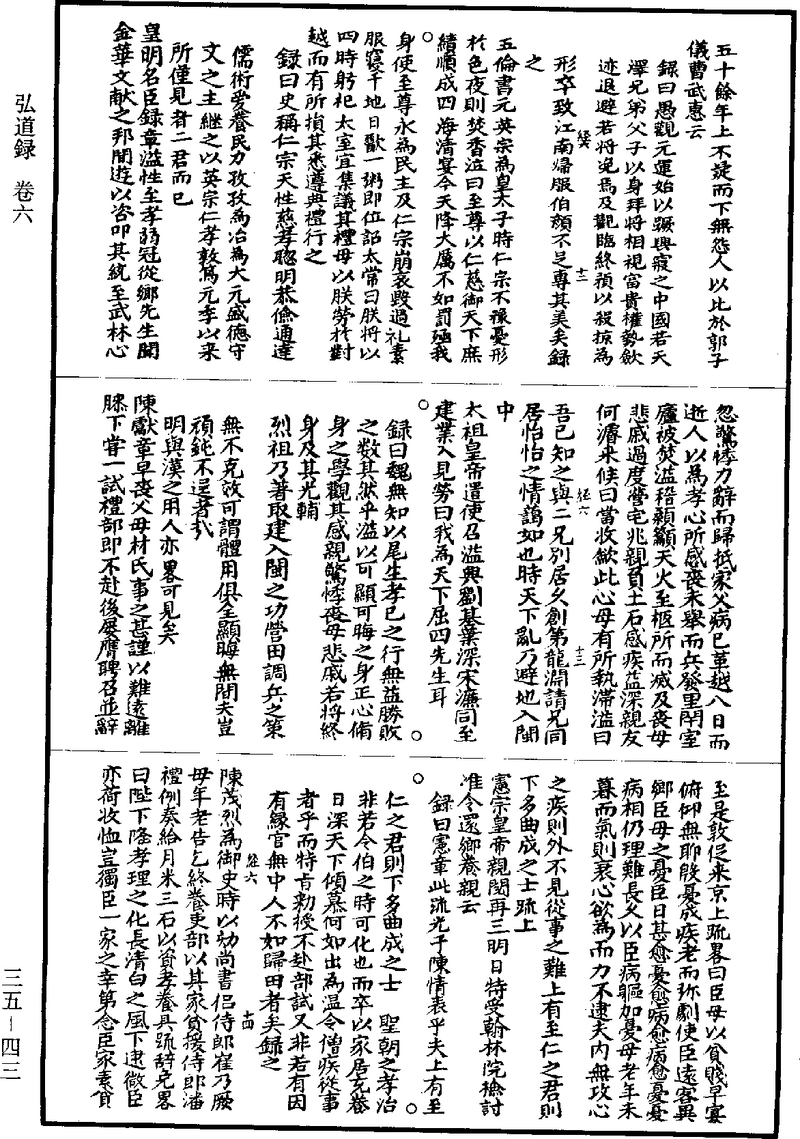 弘道録　卷六
三五－四三
五十餘年上不疑而下無怨人以比於郭子
儀曹武惠云
録曰愚觀元運始以蹶興寢之中國若天
澤兄弟父子以身拜將相視富貴權勢歛
迹退避若將浼焉及觀臨終預以殺掠為
形卒致江南歸服伯顔不足專其美矣録
之
五倫書元英宗為皇太子時仁宗不豫憂形
於色夜則焚香泣曰至尊以仁慈御天下庶
績順成四海清宴今天降大厲不如罰殛我
身使至尊永為民主及仁宗崩哀毀過礼素
服寢于地日歠一粥即位詔太常曰朕將以
四時躬祀太室宜集議其禮毋以朕勞於對
越而有所損其悉遵典禮行之
録曰史稱仁宗天性慈孝聰明恭儉通達
儒術愛養民力孜孜為治為大元盛德守
文之主継之以英宗仁孝敦篤元季以来
所僅見者二君而已
皇明名臣録章溢性至孝弱冠從鄉先生聞
金華文献之邦間遊以咨叩其統至武林心
忽驚悸力辭而歸抵家父病已革越八日而
逝人以為孝心所感喪未舉而兵發里閈室
廬被焚溢稽顙籲天火至柩所而滅及喪母
悲戚過度營宅兆親負土石感疾益深親友
何濬来候曰當收歛此心毋有所執滯溢曰
吾已知之與二兄別居久創第龍淵請兄同
居怡怡之情藹如也時天下亂乃避地入閩
中
太祖皇帝遣使召溢與劉基葉深宋濂同至
建業入見勞曰我為天下屈四先生耳
録曰魏無知以尾生孝已之行無益勝敗
之数其然乎溢以可顯可晦之身正心脩
身之學觀其感親驚悸喪母悲戚若將終
身及其光輔
烈祖乃著取建入閩之功營田調兵之策
無不克效可謂體用俱全顯晦無間夫豈
頑鈍不逞者哉
明與漢之用人亦畧可見矣
陳獻章早喪父母林氏事之甚謹以難遠離
膝下嘗一試禮部即不赴後屡膺聘召並辭
至是敦促来京上疏畧曰臣母以貧賤早寡
俯仰無聊殷憂成疾老而弥劇使臣遠客異
鄉臣母之憂臣日甚愈憂愈病愈病愈憂憂
病相仍理難長久以臣病軀加憂母老年未
暮而氣則衰心欲為而力不逮夫内無攻心
之疾則外不見從事之難上有至仁之君則
下多曲成之士疏上
憲宗皇帝親閱再三明日特受翰林院檢討
准令還鄉養親云
録曰憲章此疏光于陳情表乎夫上有至
仁之君則下多曲成之士　聖朝之孝治
非若令伯之時可化也而卒以家居充養
日深天下傾慕何如出為温令僧疾從事
者乎而特古勅授不赴部試又非若有因
有縁官無中人不如歸田者矣録之
陳茂烈為御史時以幼尚書侣侍郎崔乃厥
母年老告乞終養吏部以其家貧援侍郎潘
禮例奏給月米三石以資孝養具疏辭免畧
曰陛下隆孝理之化長清白之風下逮微臣
亦荷收恤豈獨臣一家之幸第念臣家素貧
経六
十二
経六
十三
経六
十四